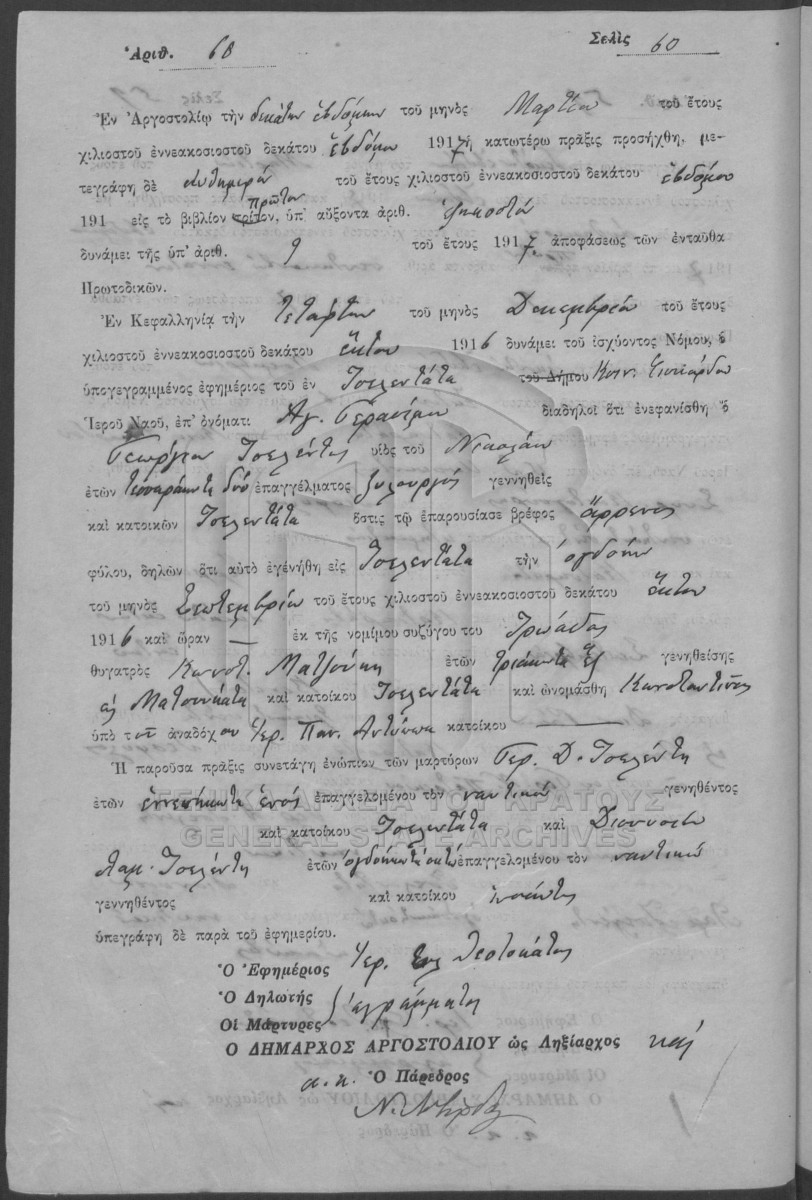 Ἀριθ. 60
Σελὶς 60
Ἐν Ἀργοστολίῳ τὴν δεκάτην ἑβδόμην τοῦ μηνὸς Μαρτίου τοῦ ἔτους
χιλιοστοῦ ἐννεακοσιοστοῦ δεκάτου ἑβδόμου 1917 ἡ κατωτέρω πρᾶξις προσήχθη, με-
τεγράφη δὲ αὐθημερὸν τοῦ ἔτους χιλιοστοῦ ἐννεακοσιοστοῦ δεκάτου ἑβδόμου
πρῶτον
191 εἰς τὸ βιβλίον τρίτον, ὑπ' αὔξοντα ἀριθ. ἑξηκοστὸν
δυνάμει τῆς ὑπ' ἀριθ. 9 τοῦ ἔτους 1917. ἀποφάσεως τῶν ἐνταῦθα
Πρωτοδικῶν.
Ἐν Κεφαλληνίᾳ τὴν τετάρτην τοῦ μηνὸς Δεκεμβρίου τοῦ ἔτους
χιλιοστοῦ ἐννεακοσιοστοῦ δεκάτου ἕκτου 1916 δυνάμει τοῦ ἰσχύοντος Νόμου, ὁ
ὑπογεγραμμένος ἐφημέριος τοῦ ἐν Τσελεντάτα τοῦ Δήμου Κοιν.
Ἱεροῦ Ναοῦ, ἐπ' ὀνόματι Ἁγ. Γερασίμου διαδηλοῖ ὅτι ἐνεφανίσθη ὁ
Γεώργιος Τσελέντης υἱὸς τοῦ Νικολάου
ἐτῶν τεσσαράκοντα δύο ἐπαγγέλματος ξυλουργὸς γεννηθεὶς
καὶ κατοικῶν Τσελεντάτα ὅστις τῷ ἐπαρουσίασε βρέφος ἄρρενος
φύλου, δηλῶν ὅτι αὐτὸ ἐγεννήθη εἰς Τσελεντάτα τὴν ὀγδόην
τοῦ μηνὸς Σεπτεμβρίου τοῦ ἔτους χιλιοστοῦ ἐννεακοσιοστοῦ δεκάτου ἕκτου
1916 καὶ ὥραν — ἐκ τῆς νομίμου συζύγου του Τρωάδος
θυγατρὸς Κωνστ. Ματζούκη ἐτῶν τριάκοντα ἓξ γενηθείσης
εἰς Ματσουκάτα καὶ κατοίκου Τσελεντάτα καὶ ὠνομάσθη Κωνσταντῖνος
ὑπὸ τοῦ ἀναδόχου Ἱερ. Παν. κατοίκου —
Ἡ παροῦσα πρᾶξις συνετάγη ἐνώπιον τῶν μαρτύρων Γερ. Δ. Τσελέντη
ἐτῶν ἐννενήκοντα ἑνὸς ἐπαγγελομένου τὸν ναυτικὸν γενηθέντος
καὶ κατοίκου Τσελεντάτα καὶ Διονυσίου
Τσελέντη ἐτῶν ὀγδοήκοντα ὀκτὼ ἐπαγγελομένου τὸν ναυτικὸν
γεννηθέντος καὶ κατοίκου ἐνταῦθα
ὑπεγράφη δὲ παρὰ τοῦ ἐφημερίου.
Ὁ Ἐφημέριος Ἱερ.
Ὁ Δηλωτὴς
Οἱ Μάρτυρες ἀγράμματοι
Ὁ ΔΗΜΑΡΧΟΣ ΑΡΓΟΣΤΟΛΙΟΥ ὡς Ληξίαρχος
α.α. Ὁ Πάρεδρος
ΓΕΝΙΚΑ ΑΡΧΕΙΑ ΤΟΥ ΚΡΑΤΟΥΣ
GENERAL STATE ARCHIVES